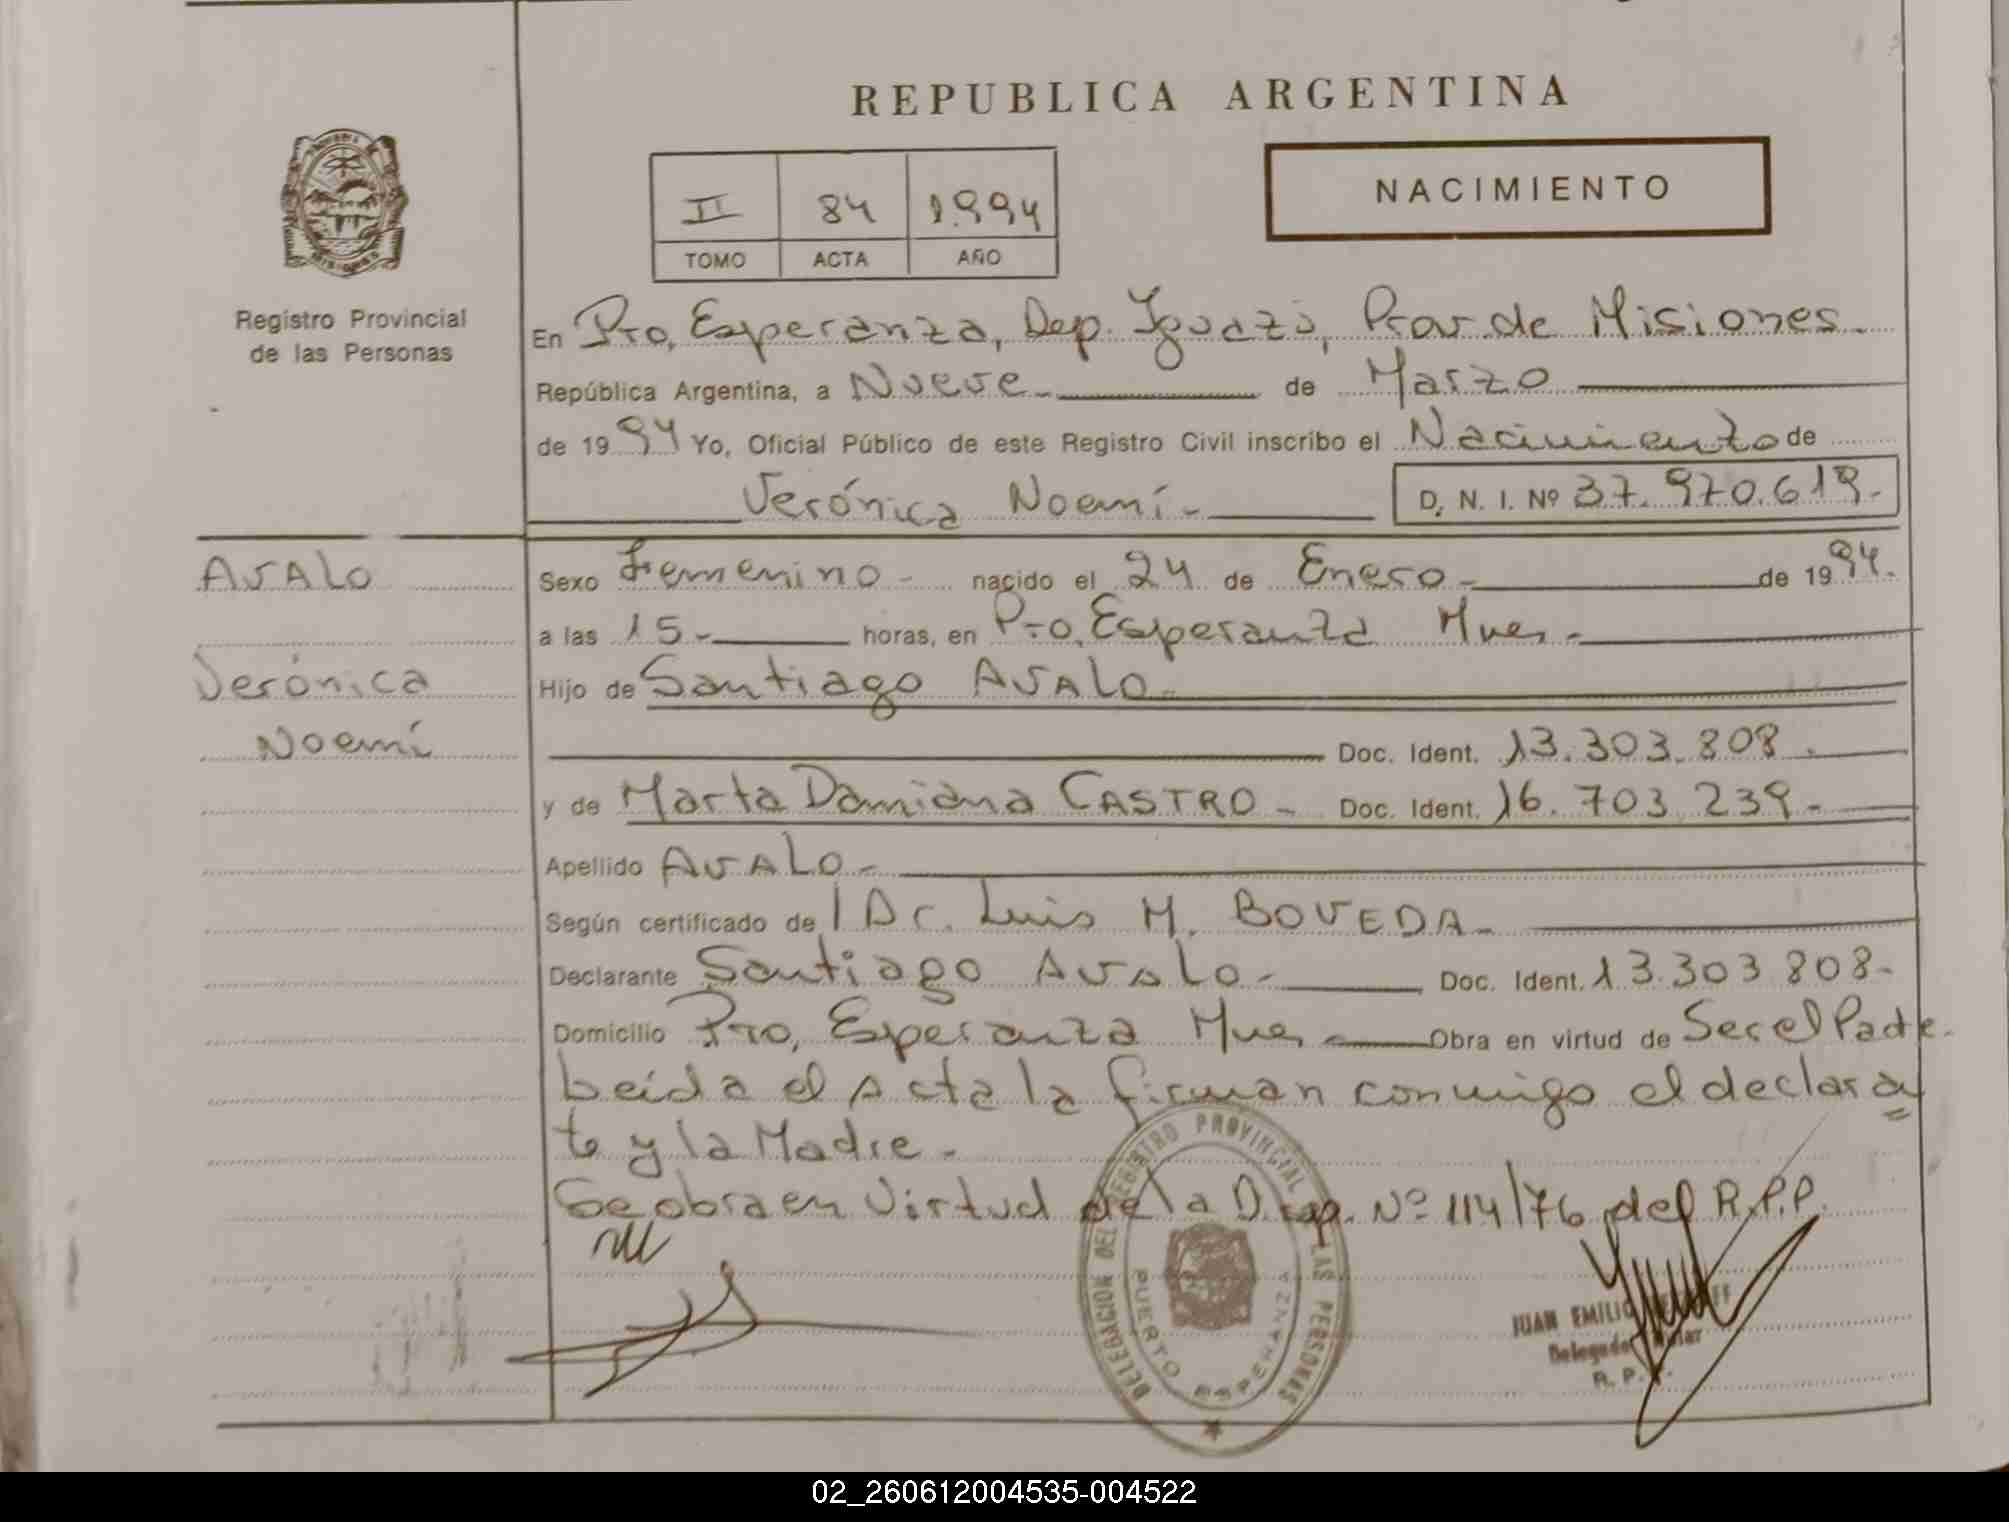 REPUBLICA ARGENTINA
NACIMIENTO
II 84 1.994
TOMO ACTA AÑO
Registro Provincial
de las Personas
En Pto. Esperanza, Dep. Iguazú, Prov de Misiones.
República Argentina, a Nueve de Marzo
de 19 94 Yo, Oficial Público de este Registro Civil inscribo el Nacimiento de
Verónica Noemí D. N. I. Nº 37.970.619.
AVALO
Verónica
Noemí
Sexo Femenino nacido el 24 de Enero de 19 94.
a las 15 horas, en Pto. Esperanza Mnes.
Hijo de Santiago AVALO
Doc. Ident. 13.303.808.
y de Marta Damiana CASTRO Doc. Ident. 16.703.239.
Apellido AVALO
Según certificado de l Dr. Luis M. BOVEDA
Declarante Santiago AVALO Doc. Ident. 13.303.808
Domicilio Pto. Esperanza Mnes Obra en virtud de Ser el Padre.
Leída el Acta la firman conmigo el declaran
te y la Madre.
Se obra en Virtud de la Disp. Nº 114/76 del R.P.P.
DELEGACION DEL REGISTRO PROVINCIAL LAS PERSONAS
PUERTO ESPERANZA
JUAN EMILIO
Delegado
R. P.
02_260612004535-004522